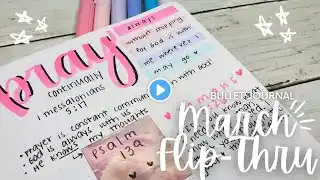 pray
continually
1 thessalonians
5:17
always
without stopping
for God is with
me wherever I
may go
with God!
• prayer is constant commun
• God is always with
• He knows my thoughts
psalm
139
BULLET JOURNAL
March
Flip-Thru